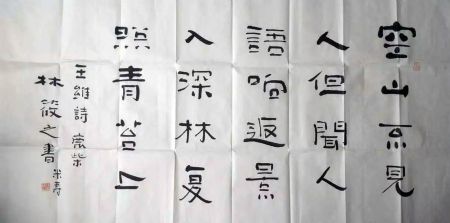 空山不見
人但聞人
語响返景
入深林复
照青苔上
王維詩 鹿柴
林筱之書
米寿